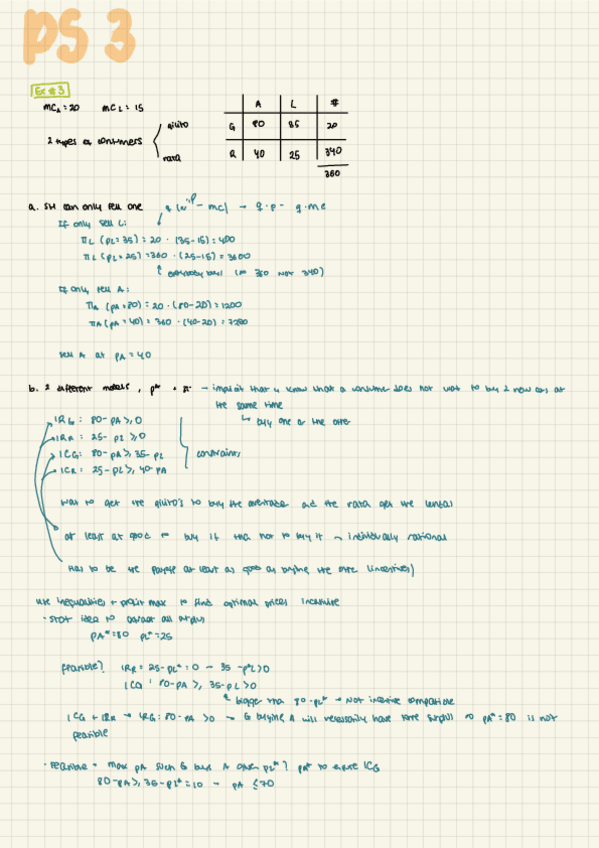 PS 3
Ex #3
MCA = 20 MCL = 15
A L #
2 types of consumers giulito G 80 35 20
rata R 40 25 340
360
a. SH can only sell one q (p - mc) → q·p - q·mc
If only sell L:
πL (pL = 35) = 20 · (35-15) = 400
πL (pL = 25) = 360 · (25-15) = 3600
everybody buys (so 360 not 340)
If only sell A:
πA (pA = 80) = 20 · (80-20) = 1200
πA (pA = 40) = 360 · (40-20) = 7200
sell A at pA = 40
b. 2 different models, p* + π* - implicit that u know that a consumer does not want to buy 2 new cars at
the same time
↳ buy one or the other
IRG: 80 - pA ≥ 0
IRR: 25 - pL ≥ 0
ICG: 80 - pA ≥ 35 - pL constraints
ICR: 25 - pL ≥ 40 - pA
want to get the giulito's to buy the and the rata get the
at least as good to buy it than not to buy it → individually rational
has to be the purpose at least as good as buying the other (incentives)
use inequalities + profit max to find optimal prices
- start idea to extract all surplus
pA* = 80 pL* = 25
feasible? IRR = 25 - pL* = 0 → 35 - pL* > 0
ICG: 80 - pA ≥ 35 - pL > 0
bigger than 80 - pL* → Not incentive compatible
ICG + IRR → IRG: 80 - pA > 0 → G buying A will necessarily have some surplus → pA* = 80 is not
feasible
- feasible = max pA such G buys A given pL*? pA* to ensure ICG
80 - pA ≥ 35 - pL* = 10 → pA ≤ 70